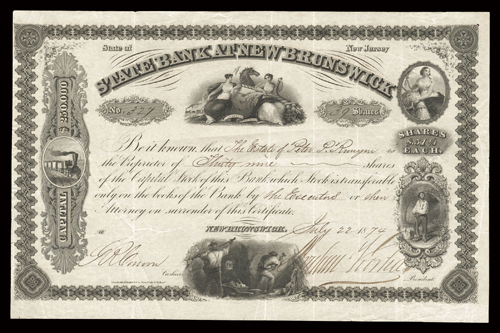 State of New Jersey
STATE BANK AT NEW BRUNSWICK
No. 39 Shares
CAPITAL $250,000
SHARES
EACH.
Be it known, that The Estate of Peter P. Runyon is
the Proprietor of Thirty nine shares
of the Capital Stock of this Bank, which Stock is transferable
only on the books of the Bank by the Executors or their
Attorney on surrender of this Certificate.
NEW BRUNSWICK. July 22 1874
Cashier
President